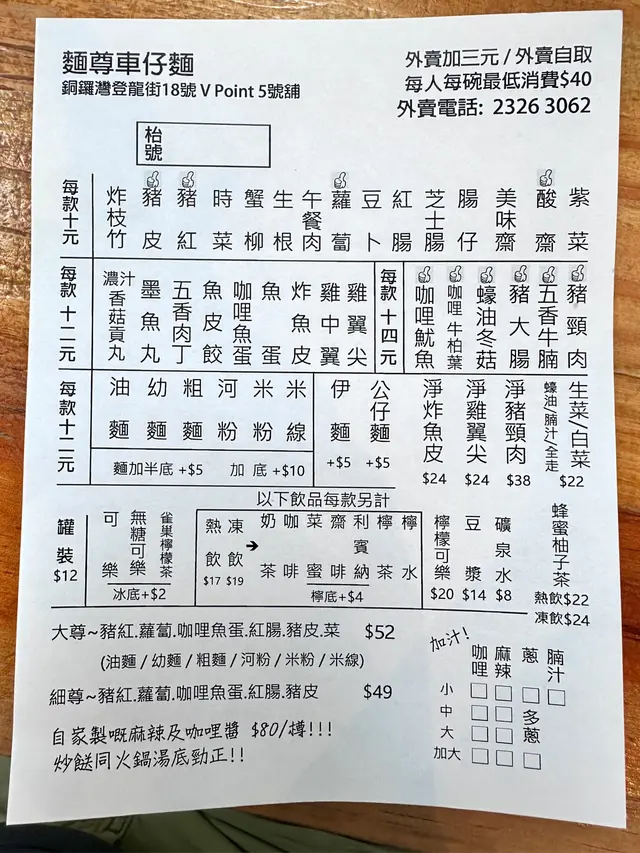 麵尊車仔麵
銅鑼灣登龍街18號 V Point 5號舖
外賣加三元 / 外賣自取
每人每碗最低消費$40
外賣電話: 2326 3062
枱號
每款十元
炸枝竹
豬皮
豬紅
時菜
蟹柳
生根
午餐肉
蘿蔔
豆卜
紅腸
芝士腸
腸仔
美味齋
酸齋
紫菜
每款十二元
濃汁香菇貢丸
墨魚丸
五香肉丁
魚皮餃
咖哩魚蛋
魚蛋
炸魚皮
雞中翼
雞翼尖
每款十四元
咖哩魷魚
咖哩牛柏葉
蠔油冬菇
豬大腸
五香牛腩
豬頸肉
每款十二元
油麵
幼麵
粗麵
河粉
米粉
米線
麵加半底 +$5 加底 +$10
伊麵 +$5
公仔麵 +$5
淨炸魚皮 $24
淨雞翼尖 $24
淨豬頸肉 $38
蠔油/腩汁/全走
生菜/白菜
$22
以下飲品每款另計
罐裝 $12
可樂
無糖可樂
雀巢檸檬茶
冰底+$2
熱飲 $17
凍飲 $19
奶茶
咖啡
菜蜜
齋啡
利賓納
檸茶
檸水
檸底+$4
檸檬可樂 $20
豆漿 $14
礦泉水 $8
蜂蜜柚子茶
熱飲$22
凍飲$24
大尊~豬紅.蘿蔔.咖哩魚蛋.紅腸.豬皮.菜 $52
(油麵 / 幼麵 / 粗麵 / 河粉 / 米粉 / 米線)
細尊~豬紅.蘿蔔.咖哩魚蛋.紅腸.豬皮 $49
自家製嘅麻辣及咖哩醬 $80/樽!!!
炒餸同火鍋湯底勁正!!
加汁!
咖哩 麻辣 蔥 腩汁
小 □ □ □ □
中 □ □ 多蔥
大 □ □
加大 □ □ □